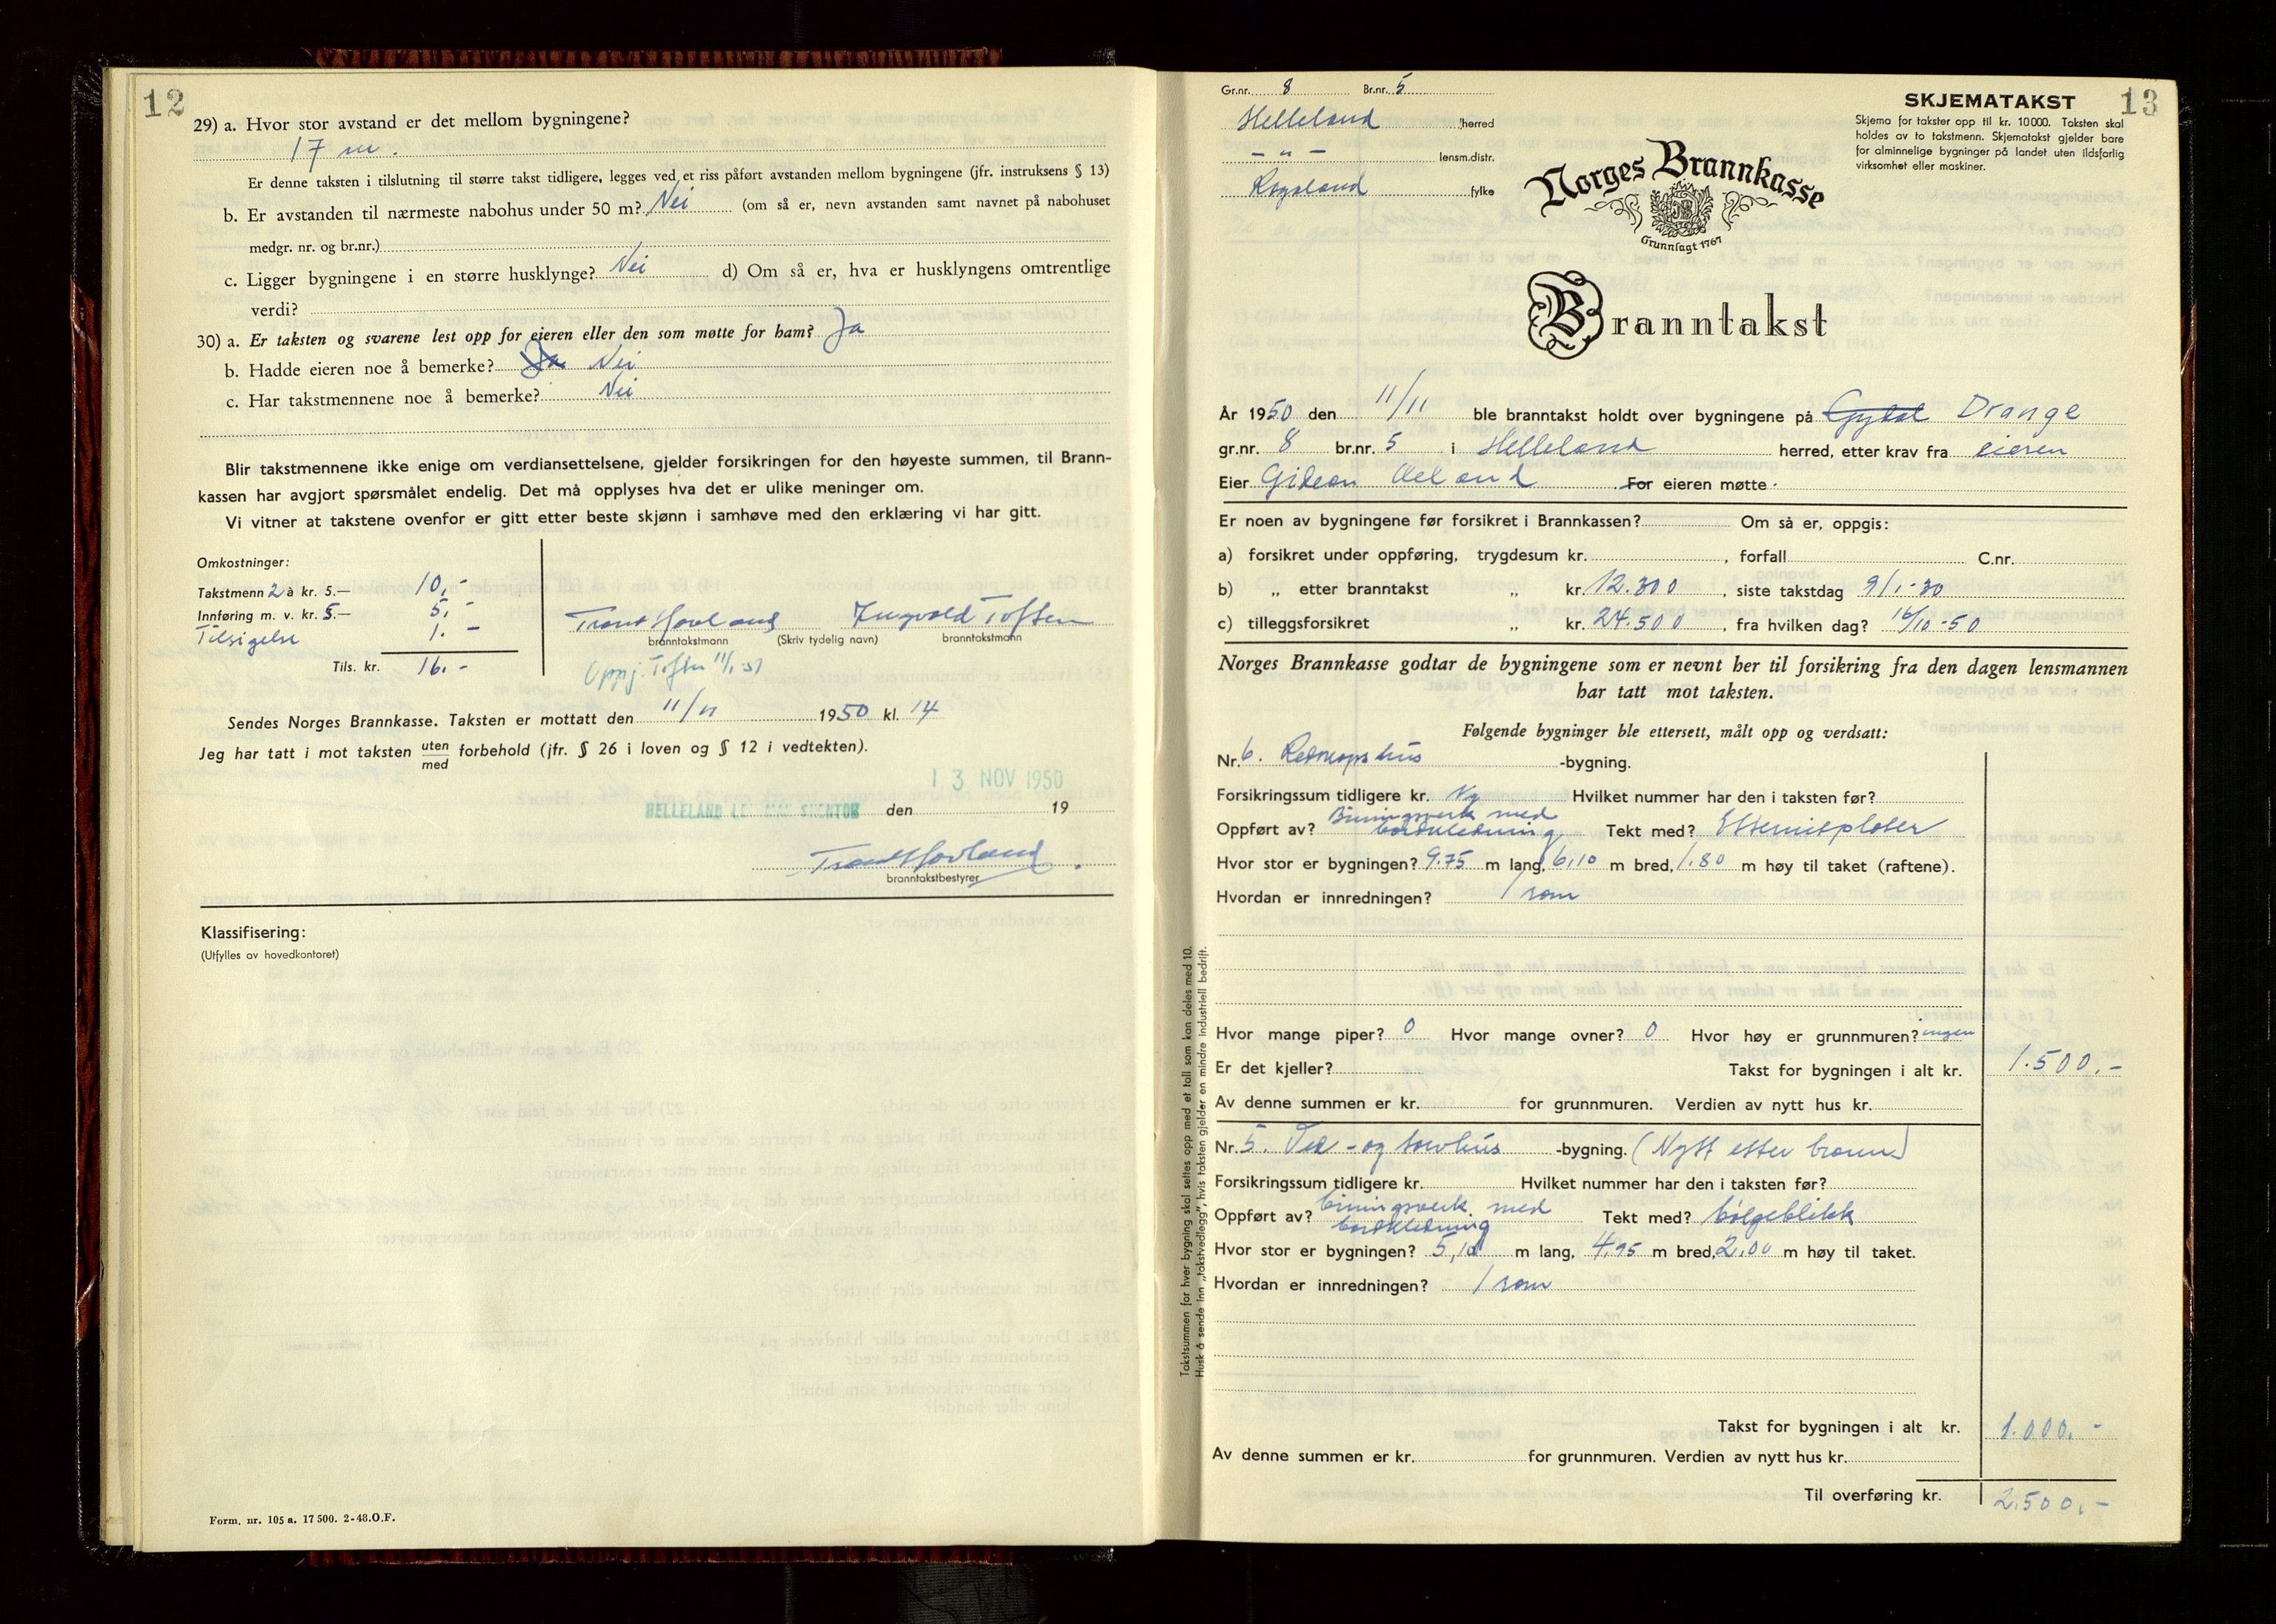 12
29) a. Hvor stor avstand er det mellom bygningene?
17 m.
Er denne taksten i tilslutning til større takst tidligere, legges ved et riss påført avstanden mellom bygningene (jfr. instruksens § 13)
b. Er avstanden til nærmeste nabohus under 50 m? Nei (om så er, nevn avstanden samt navnet på nabohuset
medgr. nr. og br.nr.)
c. Ligger bygningene i en større husklynge? Nei d) Om så er, hva er husklyngens omtrentlige
verdi?
30) a. Er taksten og svarene lest opp for eieren eller den som møtte for ham? Ja
b. Hadde eieren noe å bemerke? Ja Nei
c. Har takstmennene noe å bemerke? Nei
Blir takstmennene ikke enige om verdiansettelsene, gjelder forsikringen for den høyeste summen, til Brann-
kassen har avgjort spørsmålet endelig. Det må opplyses hva det er ulike meninger om.
Vi vitner at takstene ovenfor er gitt etter beste skjønn i samhøve med den erklæring vi har gitt.
Omkostninger:
Takstmenn 2 à kr. 5.— 10,-
Innføring m. v. kr. 5.— 5,-
Tilsigelse 1. -
Tils. kr. 16. -
Trond Hovland Ingvald Toften
branntakstmann (Skriv tydelig navn) branntakstmann
Oppj. Toften 11/1-51
Sendes Norges Brannkasse. Taksten er mottatt den 11/11 1950 kl. 14
Jeg har tatt i mot taksten uten/med forbehold (jfr. § 26 i loven og § 12 i vedtekten).
13 NOV 1950
HELLELAND den 19
Trond Hovland
branntakstbestyrer
Klassifisering:
(Utfylles av hovedkontoret)
Form. nr. 105 a. 17 500. 2-48.O.F.
Gr.nr. 8 Br.nr. 5
Helleland herred
- " - lensm.distr.
Rogaland fylke
SKJEMATAKST 13
Skjema for takster opp til kr. 10 000. Taksten skal
holdes av to takstmenn. Skjematakst gjelder bare
for alminnelige bygninger på landet uten ildsfarlig
virksomhet eller maskiner.
Norges Brannkasse
Grunnlagt 1767
Branntakst
År 1950 den 11/11 ble branntakst holdt over bygningene på Drange
gr.nr. 8 br.nr. 5 i Helleland herred, etter krav fra eieren
Eier Gideon Aeland For eieren møtte
Er noen av bygningene før forsikret i Brannkassen? Om så er, oppgis:
a) forsikret under oppføring, trygdesum kr. , forfall C.nr.
b) „ etter branntakst „ kr. 12.300 , siste takstdag 9/1-30
c) tilleggsforsikret „ kr. 24.500 , fra hvilken dag? 16/10-50
Norges Brannkasse godtar de bygningene som er nevnt her til forsikring fra den dagen lensmannen
har tatt mot taksten.
Følgende bygninger ble ettersett, målt opp og verdsatt:
Nr. 6. Redskapshus -bygning.
Forsikringssum tidligere kr. Ny Hvilket nummer har den i taksten før?
Oppført av? Binningsverk med bordkledning Tekt med? Etternitplater
Hvor stor er bygningen? 9.75 m lang, 6,10 m bred, 1.80 m høy til taket (raftene).
Hvordan er innredningen? 1 rom
Hvor mange piper? 0 Hvor mange ovner? 0 Hvor høy er grunnmuren? ingen
Er det kjeller? Takst for bygningen i alt kr. 1.500.-
Av denne summen er kr. for grunnmuren. Verdien av nytt hus kr.
Nr. 5. Ved- og torvhus -bygning. (Nytt etter brann)
Forsikringssum tidligere kr. Hvilket nummer har den i taksten før?
Oppført av? binningsverk med bordkledning Tekt med? bølgeblikk
Hvor stor er bygningen? 5,10 m lang, 4,95 m bred, 2.00 m høy til taket.
Hvordan er innredningen? 1 rom
Takst for bygningen i alt kr. 1.000.-
Av denne summen er kr. for grunnmuren. Verdien av nytt hus kr.
Til overføring kr. 2.500.-
Takstsummen for hver bygning skal settes opp med et tall som kan deles med 10.
Husk å sende inn „takstvedlegg", hvis taksten gjelder en mindre industriell bedrift.